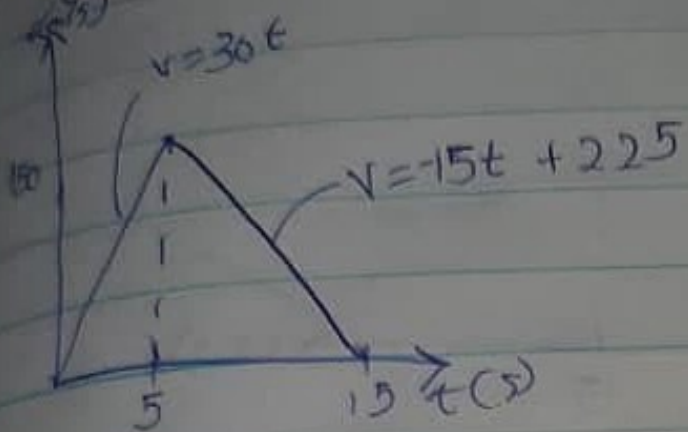 v=30t
150
V=-15t + 225
5
15
t(s)